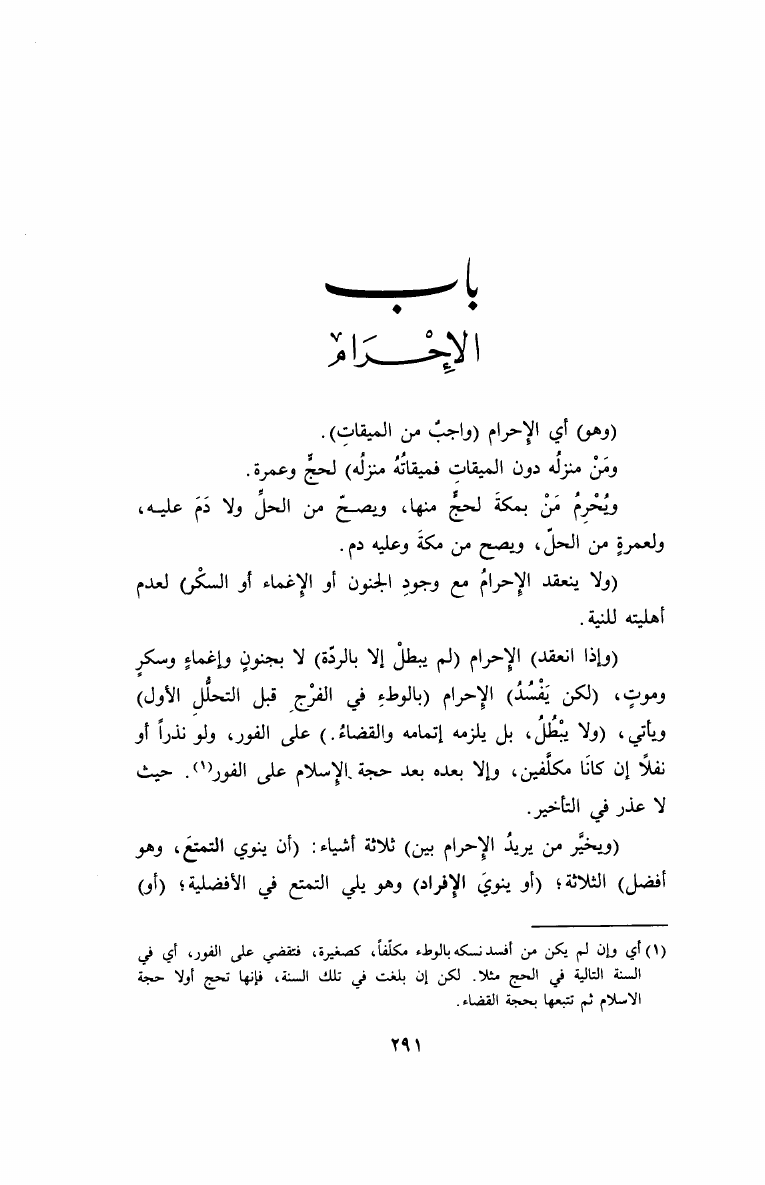 باب
الإِحْرَام
(وهو) أي الإِحرام (واجبٌ من الميقاتِ).
ومَنْ منزلُه دون الميقاتِ فميقاتُهُ منزلُه) لحجٍّ وعمرة.
ويُحْرِمُ مَنْ بمكةَ لحجٍّ منها، ويصحّ من الحلِّ ولا دَمَ عليه،
ولعمرةٍ من الحلّ، ويصح من مكةَ وعليه دم.
(ولا ينعقد الإِحرامُ مع وجودِ الجنون أو الإِغماء أو السكْر) لعدم
أهليته للنية.
(وإذا انعقد) الإِحرام (لم يبطلْ إلا بالردّة) لا بجنونٍ وإغماءٍ وسكرٍ
وموتٍ، (لكن يَفْسُدُ) الإِحرام (بالوطءِ في الفرْجِ قبل التحلُّلِ الأول)
ويأتي، (ولا يبْطُلُ، بل يلزمه إتمامه والقضاءُ.) على الفور، ولو نذراً أو
نفلاً إن كانَا مكلَّفين، وإلا بعده بعد حجة الإِسلام على الفور(١). حيث
لا عذر في التأخير.
(ويخيَّر من يريدُ الإِحرام بين) ثلاثة أشياء: (أن ينوي التمتعَ، وهو
أفضل) الثلاثة؛ (أو ينويَ الإِفراد) وهو يلي التمتع في الأفضلية؛ (أو)
(١) أي وإن لم يكن من أفسد نسكه بالوطء مكلّفاً، كصغيرة، فتقضي على الفور، أي في
السنة التالية في الحج مثلا. لكن إن بلغت في تلك السنة، فإنها تحج أولا حجة
الاسلام ثم تتبعها بحجة القضاء.
٢٩١